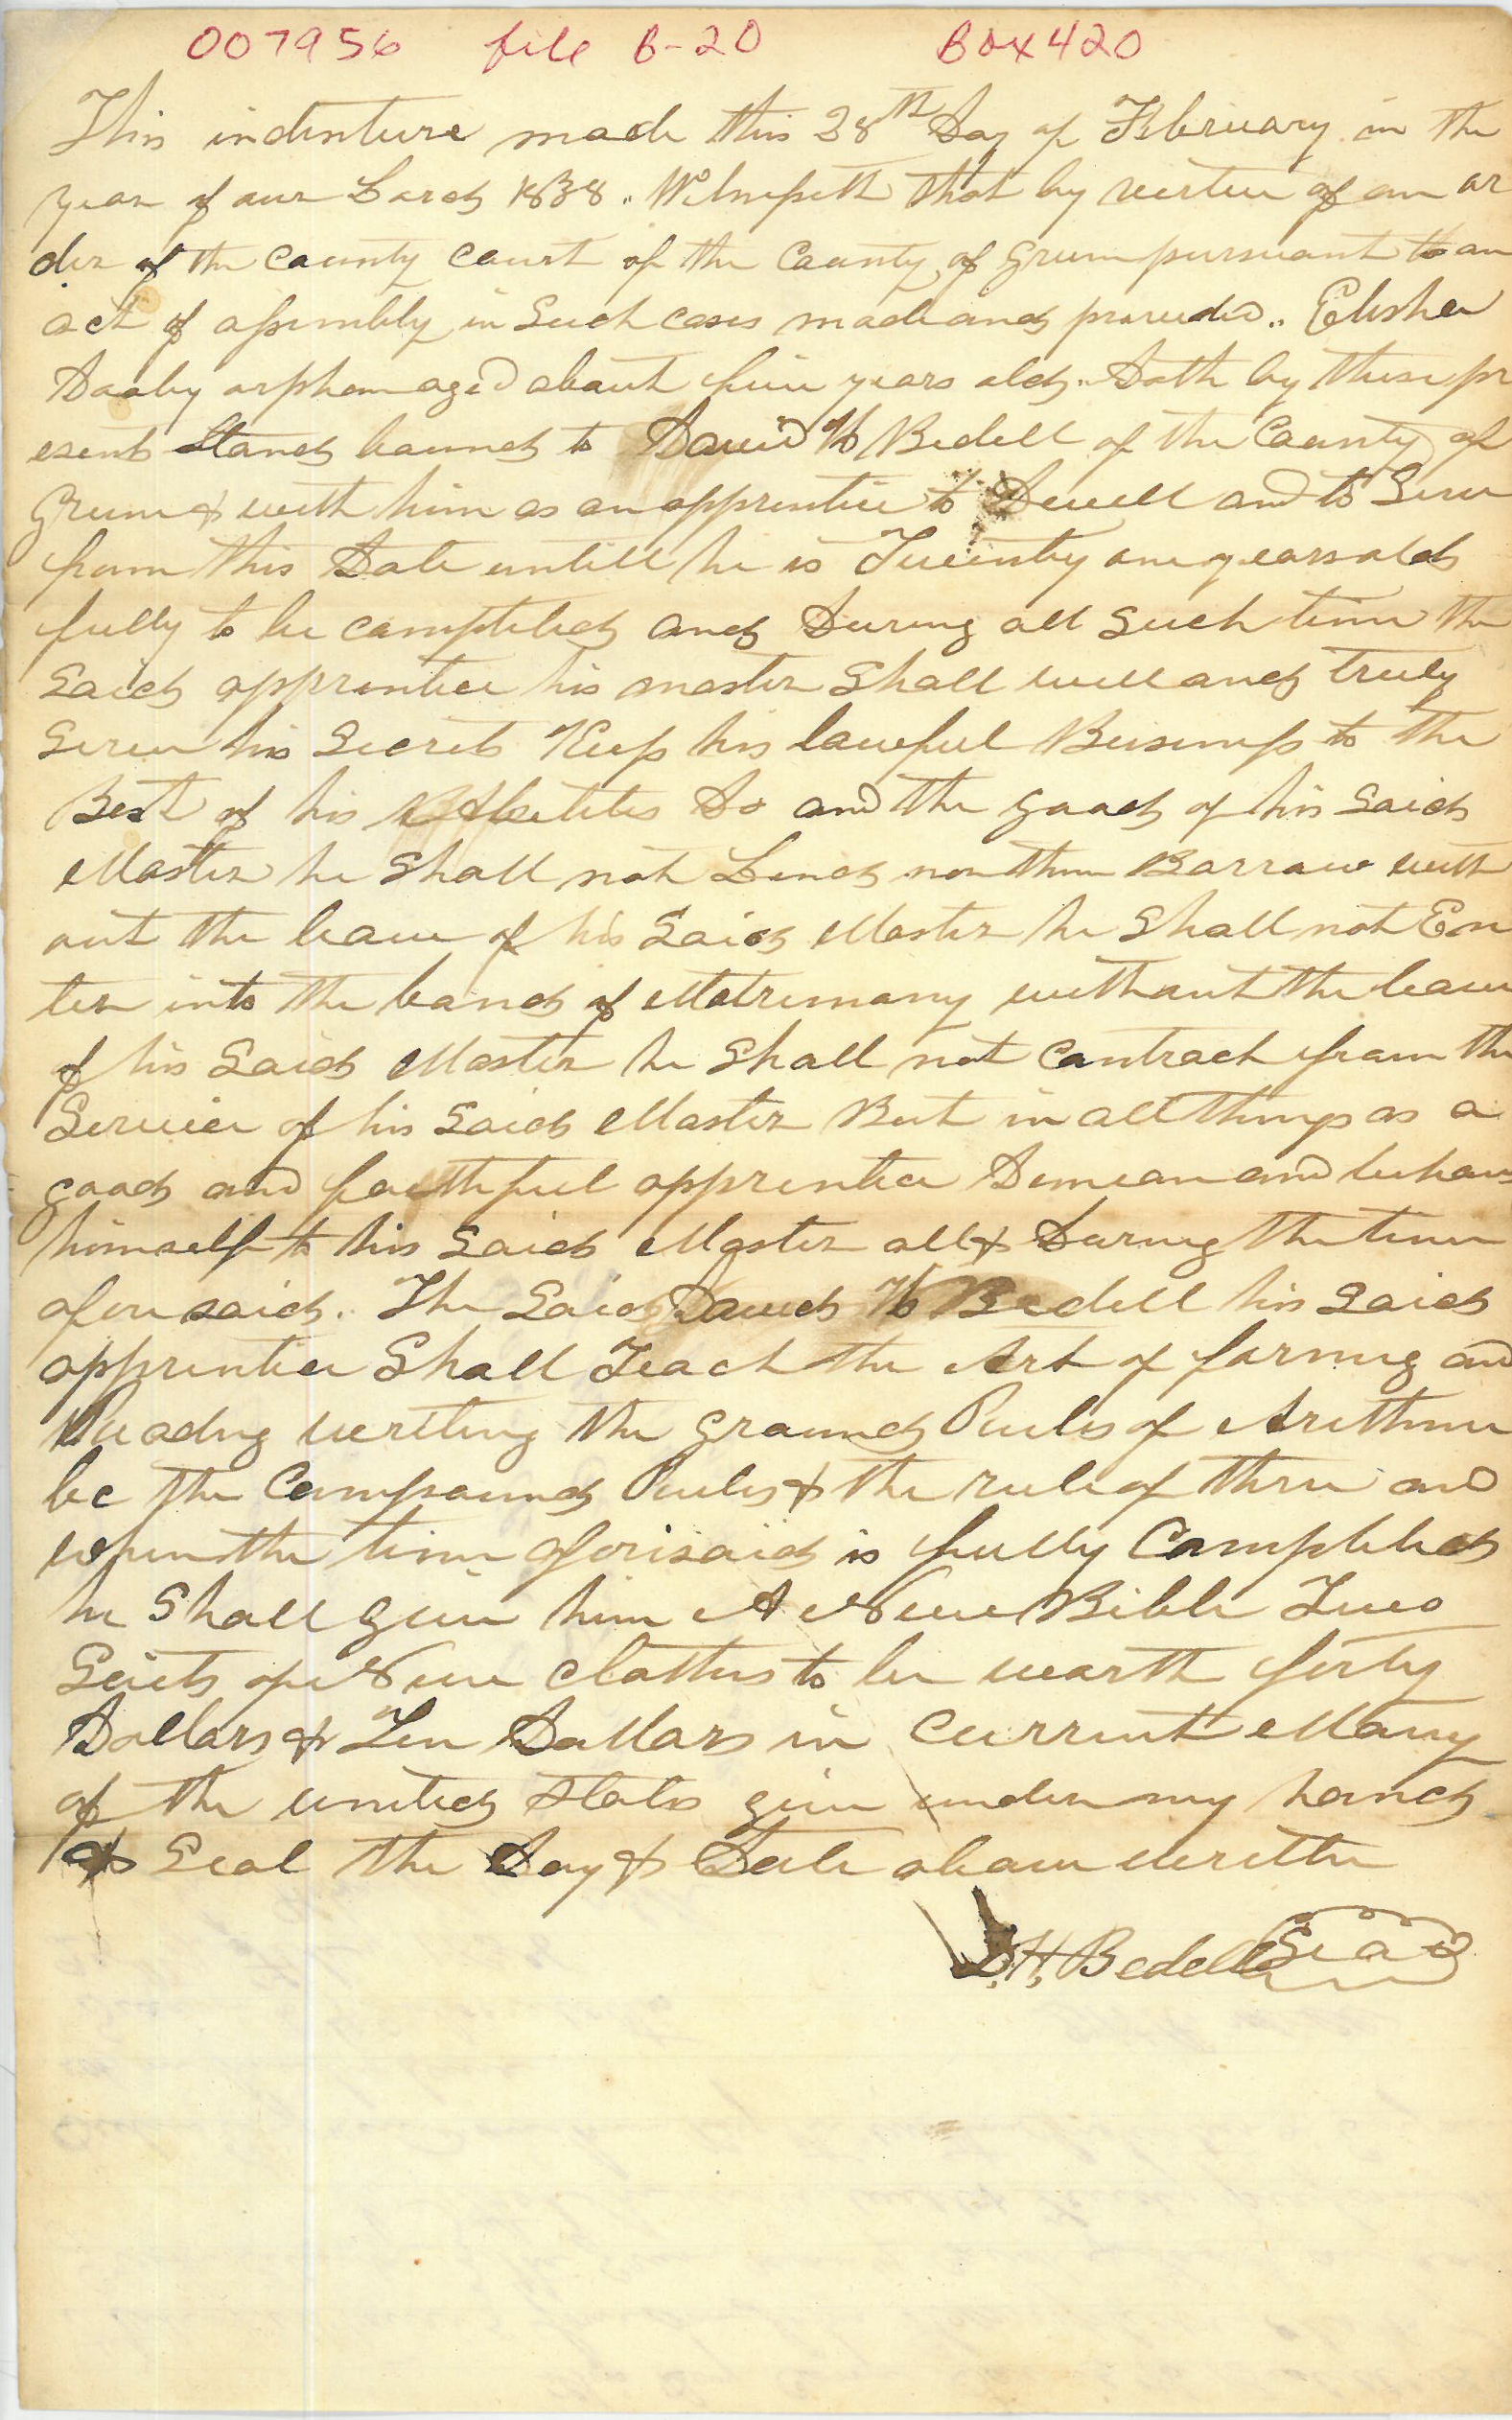 007956 file B-20 Box 420
This indenture made this 28th Day of February in the
year of our Lord 1838 .. Witnesseth that by vertue of an or
der of the County Court of the County of Green pursuant to an
act of assembly in Such cases made and provided .. Elisha
Dooby orphan aged about five years old. Doth by these pr
esents Stand bound to David H Bedell of the County of
Green & with him as an apprentice to Dwell and to Serve
from this Date untill he is Twenty one years old
fully to be completed and During all Such time the
Said apprentice his master Shall well and truly
Serve his Secrets Keep his lawful Business to the
Best of his Abelites Do and the good of his Said
Master he Shall not Lend nor Borrow with
out the leave of his Said Master he Shall not En
ter into the bands of Matrimony without the leave
of his Said Master he Shall not Contract from the
Service of his Said Master But in all things as a
good and faithful apprentice Demean and behave
himself to his Said Master all & During the time
afore said. The Said David H Bedell his Said
apprentice Shall Teach the Art of farmng and
Readng writing the Ground Rules of Arithme
tic the Compound Rules & the rule of three and
when the time aforisaid is fully Completed
he Shall give him A New Bible Two
Suits of New Clothes to be worth forty
Dollars & Ten Dollars in Current Mony
of the united States give under my hand
& Seal the Day & Date above writte
D. H. Bedell Seal